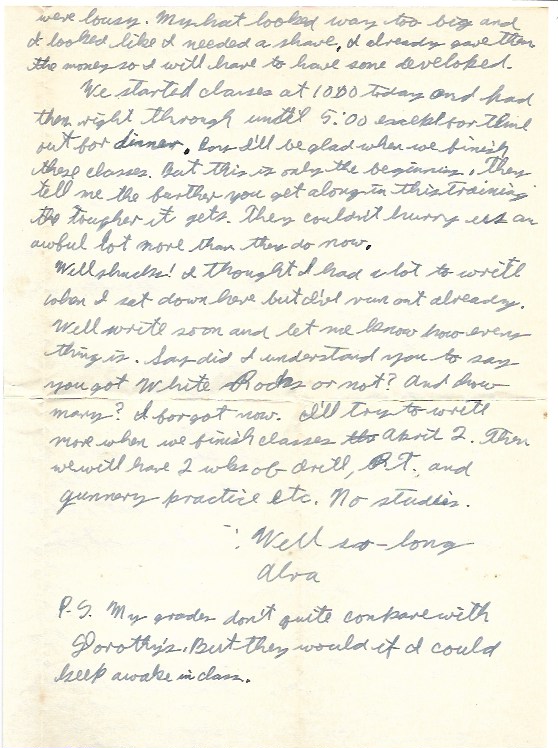 were lousy. My hat looked way too big and
I looked like I needed a shave, I already gave them
the money so I will have to have some developed.
We started classes at 10:00 today and had
them right through until 5:00 except for time
out for dinner. Boy I'll be glad when we finish
these classes. But this is only the beginning. They
tell me the farther you get along in this training
the tougher it gets. They couldn't hurry us an
awful lot more than they do now.
Well shucks! I thought I had a lot to write
when I sat down here but I've run out already.
Well write soon and let me know how every
thing is. Say did I understand you to say
you got White Rocks or not? And how
many? I forgot now. I'll try to write
more when we finish classes April 2. Then
we will have 2 wks of drill, P.T. and
gunnery practice etc. No studies.
Well so-long
Alva
P.S. My grades don't quite compare with
Dorothy's. But they would if I could
keep awake in class.